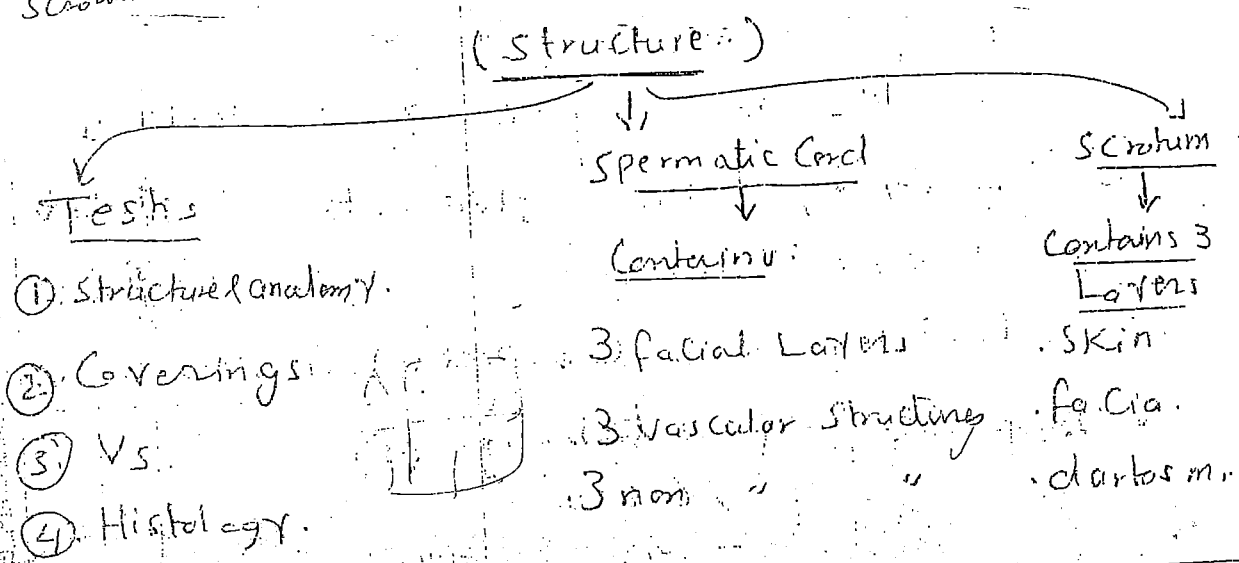 (Structure:)
Testis
① Structure & anatomy.
② Coverings
③ Vs.
④ Histology.
Spermatic Cord
Contains:
3 facial Layers
3 vascular structures
3 non " "
Scrotum
Contains 3
Layers
. Skin
. facia.
. dartos m.